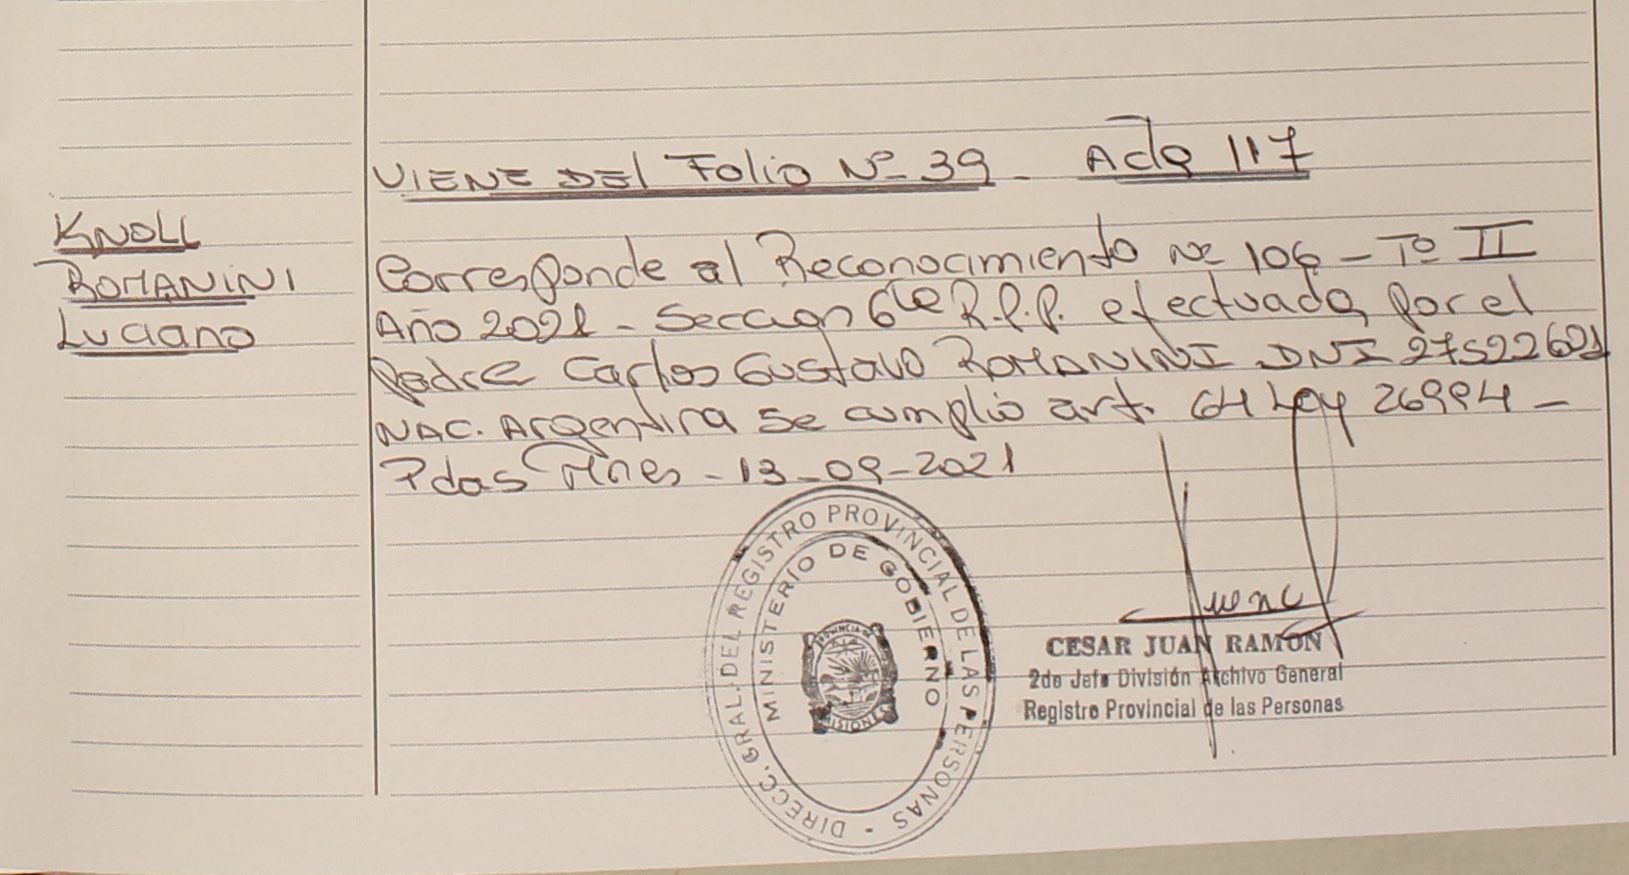 VIENE DEL Folio Nº 39 - Acta 117
KNOLL
ROMANINI
Luciano
Corresponde al Reconocimiento Nº 106 - Tº II
Año 2021 - Seccion 6ta R.P.P. efectuada por el
Padre Carlos Gustavo ROMANINI DNI 27522601
NAC. Argentina se cumplió art. 64 Ley 26994 -
Pdas - 13-09-2021
DIRECC. GRAL. DEL REGISTRO PROVINCIAL DE LAS PERSONAS -
MINISTERIO DE GOBIERNO
PROVINCIA DE
MISIONES
CESAR JUAN RAMON
2do Jefe División Archivo General
Registro Provincial de las Personas